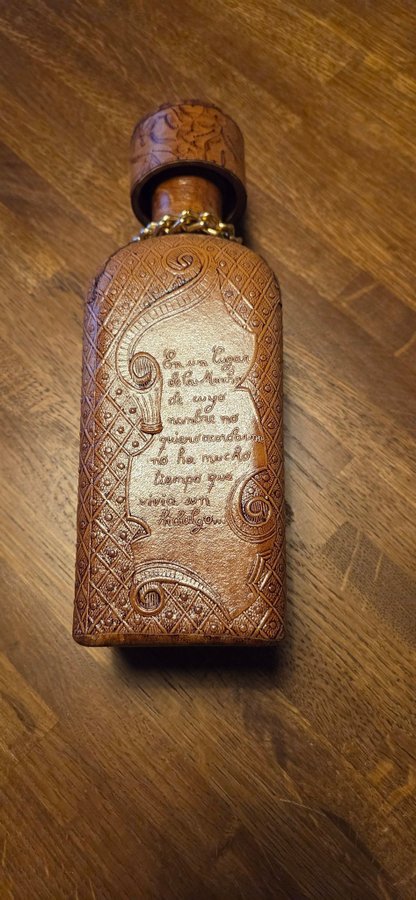 En un Lugar
de la Mancha
de cuyo
nombre no
quiero acordarme
no ha mucho
tiempo que
vivia un
hidalgo...